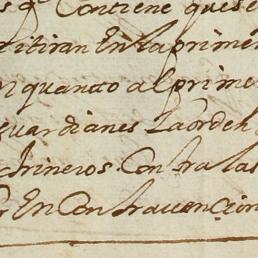 s q Contiene que se
itiran En la prime
n quanto al prime
guardianes La orden
ctrineros. Contra las
En Contravençion